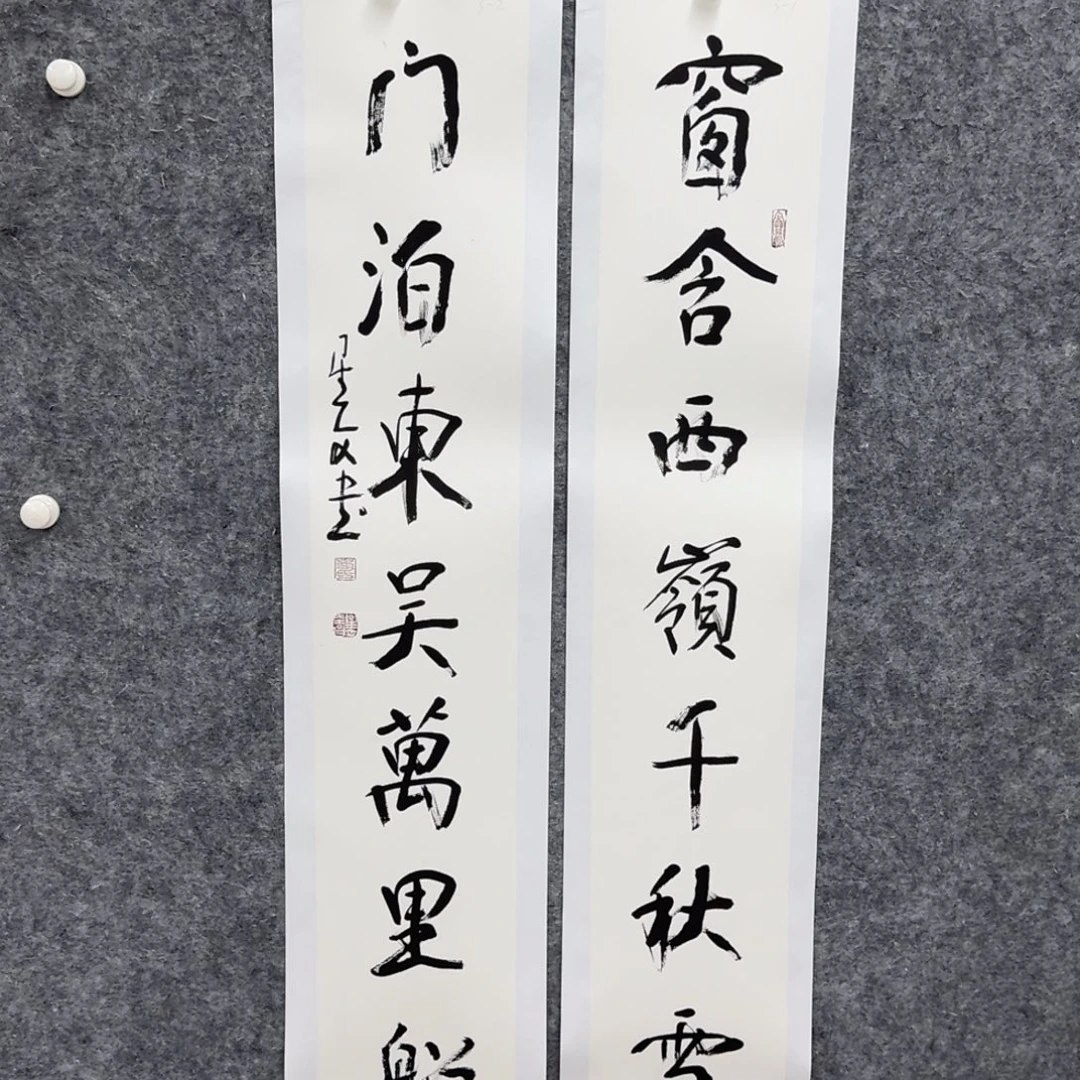 窗含西嶺千秋雪
门泊東吴萬里船